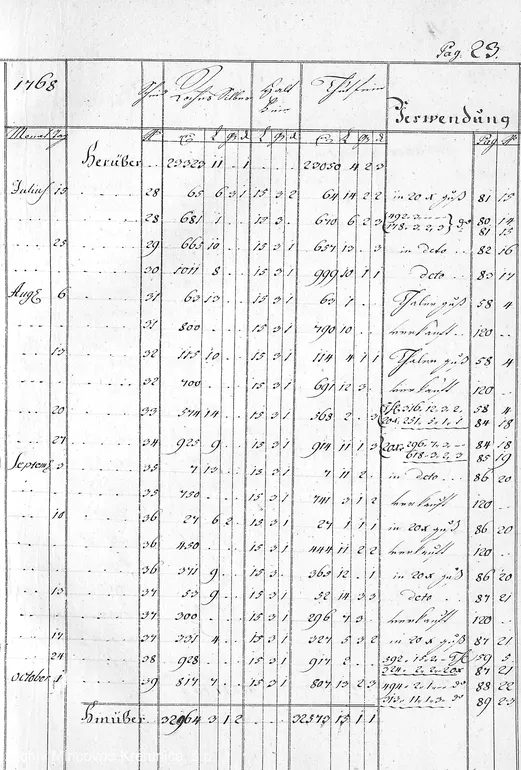 Pag. 23.
1768
Halt
Verwendung
Monat Tag № L q d L q d L q d Pag №
Herüber 23323 11 . 1 23050 4 2 3
Julius 15 28 65 6 3 1 15 3 2 64 14 2 2 in 20 x guß 81 15
28 681 1 15 3 . 670 6 2 3 80 14
178. 3. 2. 3 81 15
25 29 665 10 15 3 1 657 13 . 3 in deto 82 16
30 1011 8 15 3 1 999 10 1 1 deto 83 17
Aug 6 31 63 13 15 3 1 63 1 Thaler guß 58 4
31 800 15 3 1 790 10 verkauft 120
13 32 115 10 15 3 1 114 4 1 1 Thaler guß 58 4
32 700 15 3 1 691 12 3 verkauft 120
20 33 574 14 15 3 1 568 2 . 3 316. 12. 3. 2. 58 4
20x. 251. 5. 1. 1 84 18
27 34 925 9 15 3 1 914 11 1 3 20x 296. 7. 3. 84 18
618. 3. 2. 3 85 19
Septem 3 35 7 13 15 3 1 7 11 2 in deto 86 20
35 750 15 3 1 741 3 1 2 verkauft 120
10 36 27 6 2 15 3 1 27 1 1 1 in 20x guß 86 20
36 450 15 3 1 444 11 2 2 verkauft 120
36 371 9 15 3 . 365 12 . 1 in 20x guß 86 20
13 37 53 9 15 3 1 52 14 3 3 deto 87 21
37 300 15 3 1 296 7 3 verkauft 120
17 37 331 4 15 3 1 327 5 3 2 in 20 x guß 87 21
24 38 928 15 3 1 917 2 392. 59 5
524. 2. 2. 20x 87 21
October 1 39 817 7 15 3 1 807 13 2 3 494. 2. 1. 88 22
313. 11. 1. 3. 89 23
Hinüber 32964 3 1 2 32573 15 1 1